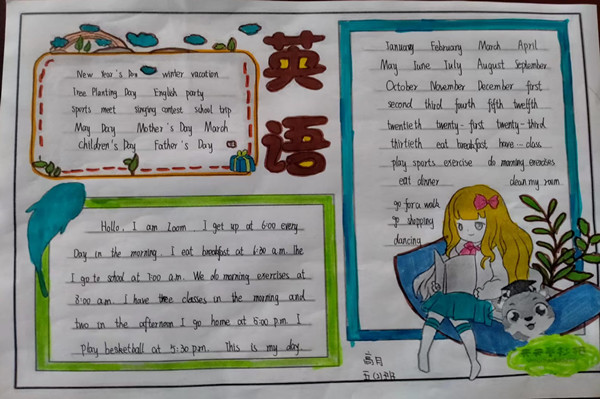 英语
New Year's Day winter vacation
Tree Planting Day English party
sports meet singing contest school trip
May Day Mother's Day March
Children's Day Father's Day
Hollo, I am Zoom. I get up at 6:00 every
Day in the morning I eat breakfast at 6:30 a.m. The
I go to school at 7:00 a.m. We do morning exercises at
8:00 a.m. I have tree classes in the morning and
two in the afternoon I go home at 5:00 p.m. I
play basketball at 5:30 p.m. This is my day.
January February March April
May June July August September
October November December first
second third fourth fifth twelfth
twentieth twenty-first twenty-third
thirtieth eat breakfast have… class
play sports exercise do morning exercises
eat dinner clean my room
go for a walk
go shopping
dancing